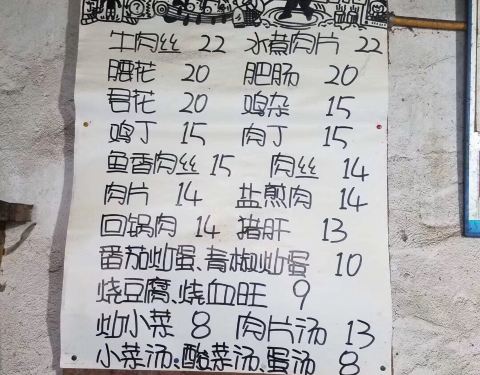 牛肉丝 22 水煮肉片 22
腰花 20 肥肠 20
君花 20 鸡杂 15
鸡丁 15 肉丁 15
鱼香肉丝 15 肉丝 14
肉片 14 盐煎肉 14
回锅肉 14 猪肝 13
番茄炒蛋、青椒炒蛋 10
烧豆腐、烧血旺 9
炒小菜 8 肉片汤 13
小菜汤、酸菜汤、蛋汤 8